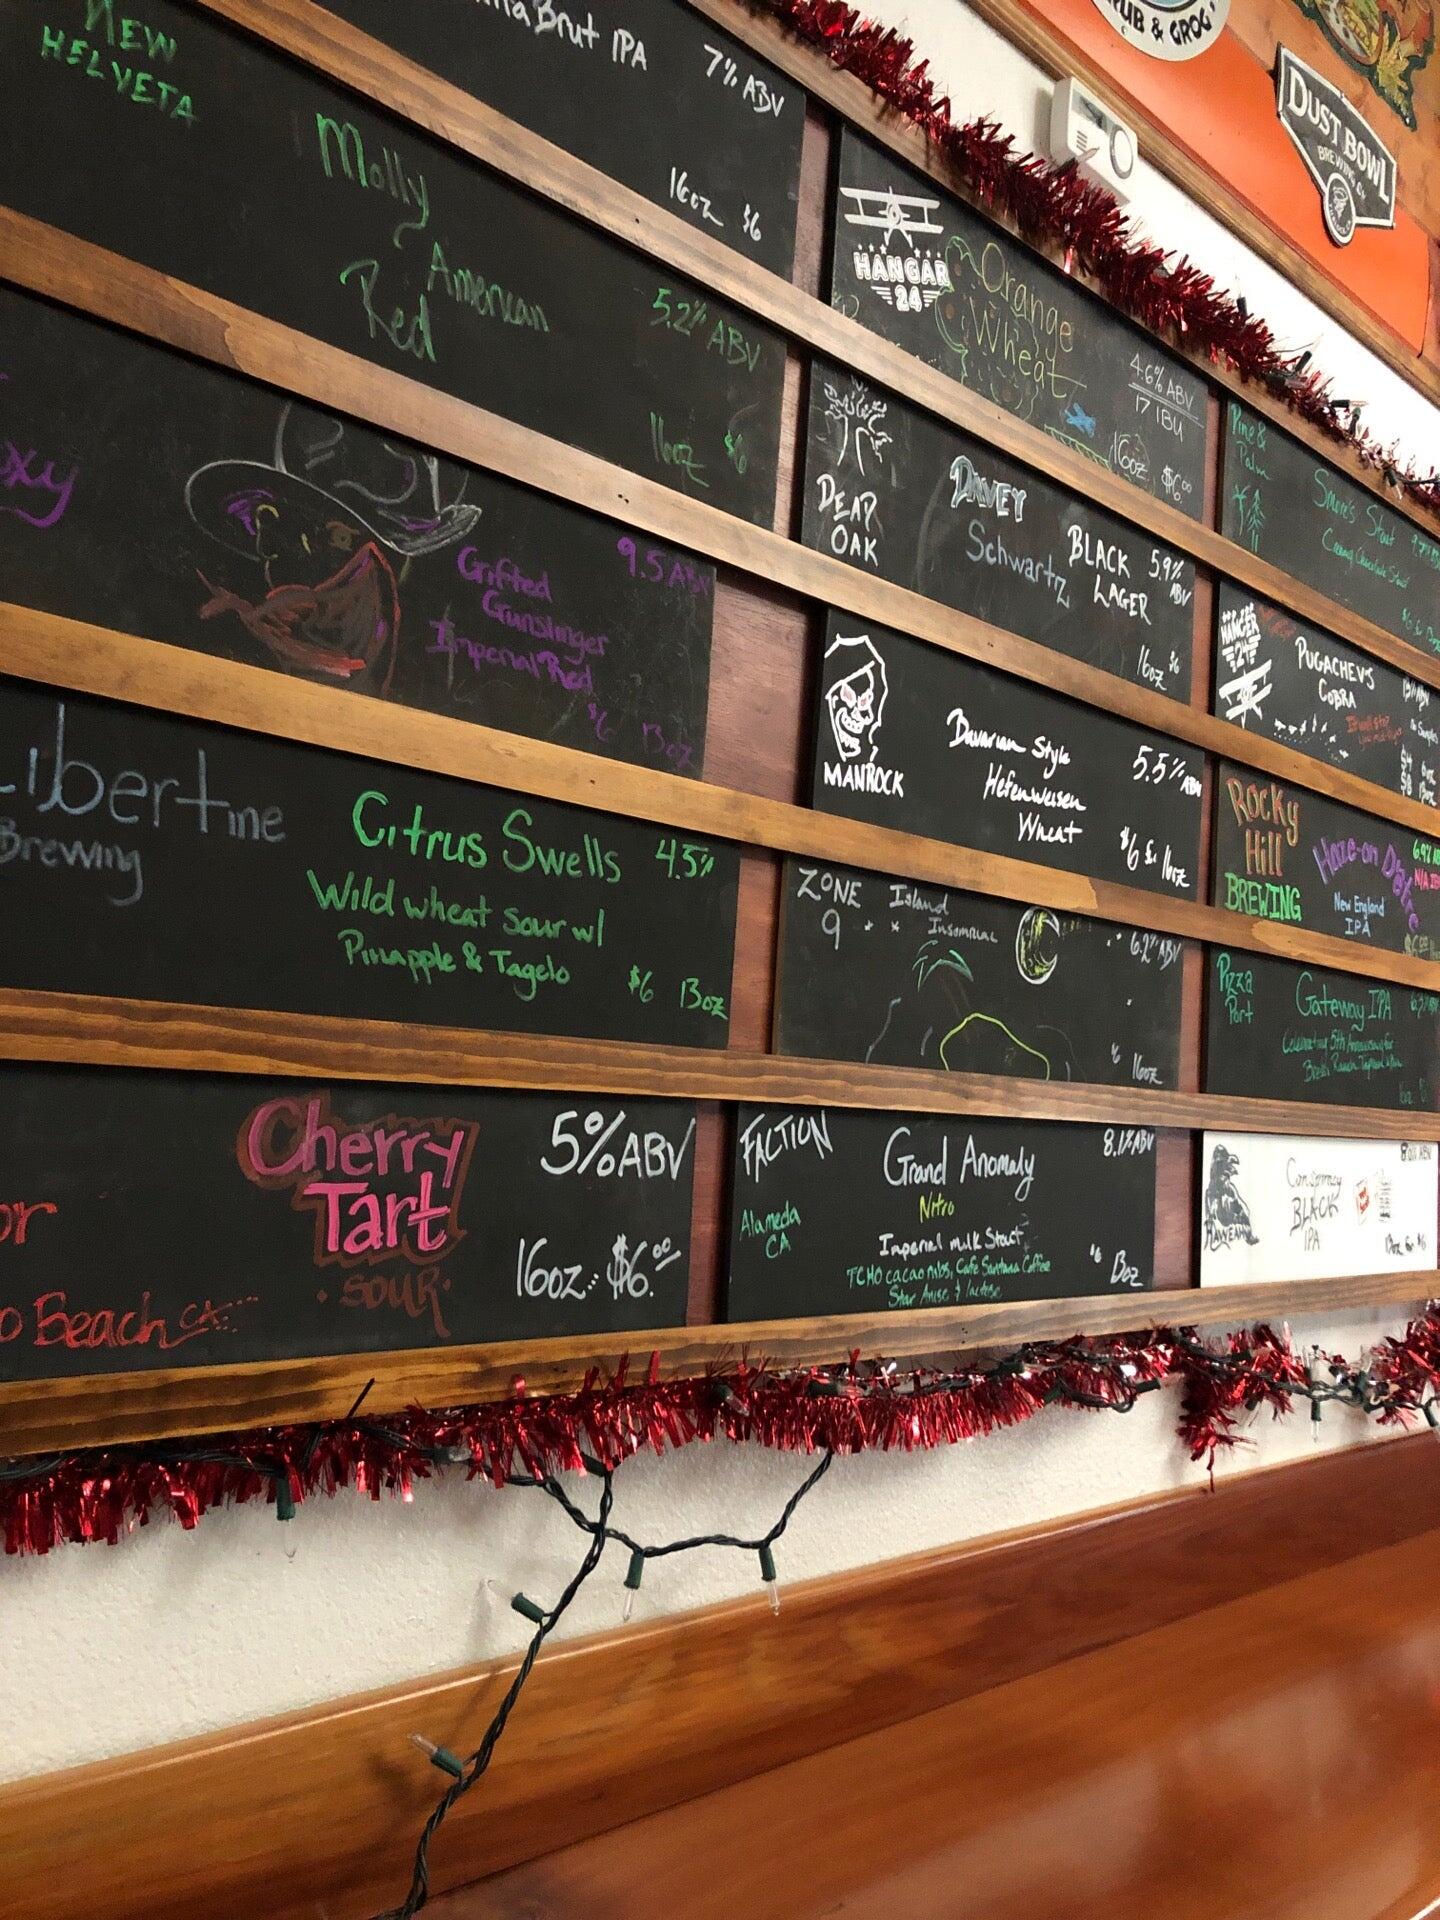 Brut IPA
7% ABV
16oz $6
NEW
HELVETA
Molly
American
Red
5.2% ABV
16oz $6
oxy
Gifted
Gunslinger
Imperial Red
9.5 ABV
$6 13oz
Libertine
Brewing
Citrus Swells 4.5%
Wild wheat sour w/
Pinapple & Tagelo
$6 13oz
or
o Beach CA
Cherry
Tart
SOUR
5% ABV
16oz $6.00
HANGAR
24
Orange
Wheat
4.6% ABV
17 IBU
16oz. $6.00
DEAD
OAK
DAVEY
Schwartz
BLACK
LAGER
5.9%
ABV
16oz $6
MANROCK
Bavarian Style
Hefenweisen
Wheat
5.5% ABV
$6 for 16oz
ZONE
9
Island
Insomniac
6.2% ABV
16oz
FACTION
Alameda
CA
Grand Anomaly
Nitro
Imperial milk Stout
TCHO cacao nibs, Café Santana Coffee
Star Anise & lactose
8.1% ABV
$6 13oz
Pine &
Palm
Smore's Stout
Creamy Chocolate Stout
HANGER
24
PUGACHEV'S
COBRA
No Samples
ROCKY
Hill
BREWING
Haze-on Daze
New England
IPA
6.9% AB
Pizza
Port
Gateway IPA
Celebrating 5th Anniversary for
Conspiracy
BLACK
IPA
13oz for $6
RUB & GROG
DUST BOWL
BREWING CO